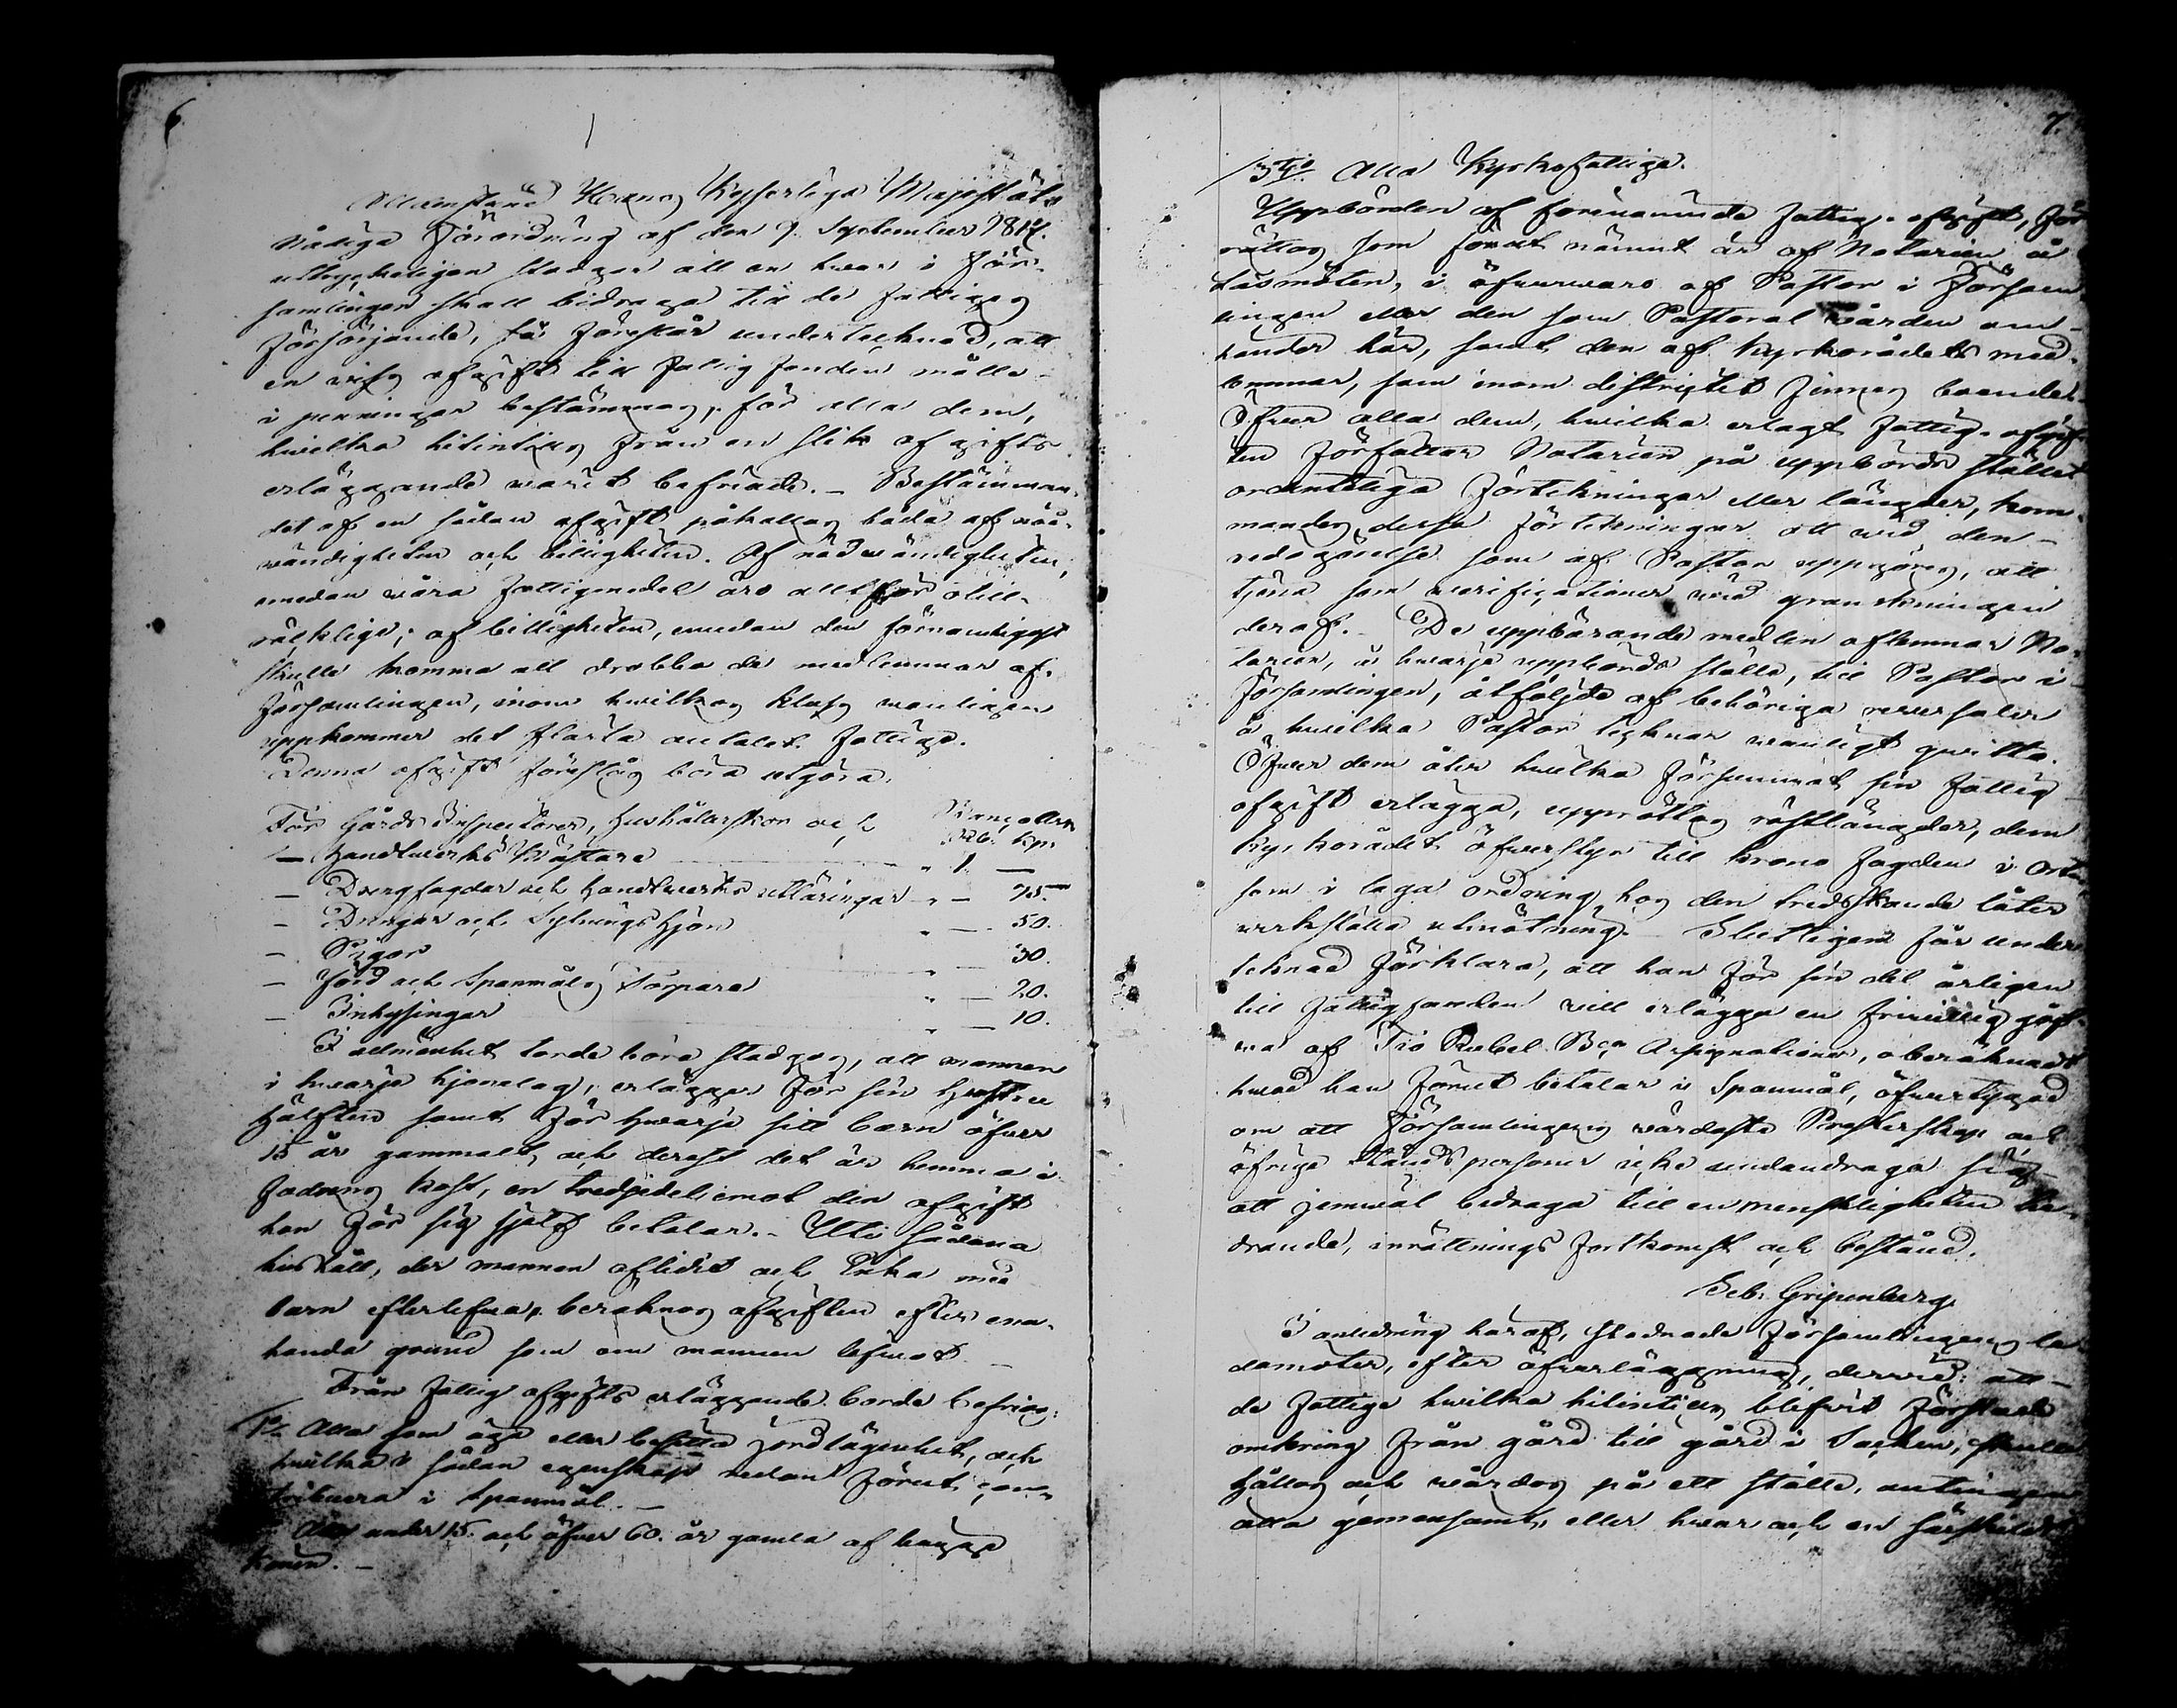 6.
Allenstund Hans Kejserliga Majestäts
Nådiga Förordning af den 9. September 1817.
uttryckeligen stadgar att en hwar i För-
samlingen skall bidraga till de fattigas
försörjande, så föreslår undertecknad, att
en wiss afgift till Fattig fonden måtte
i penningar bestämmas, för alla dem,
hwilka hitintills från en slik afgifts
erläggande warit befriade. - Bestämman-
det af en sådan afgift påkallas både af nöd-
wändigheten och billigheten. Af nödwändigheten,
emedan wåra fattigmedel äro alltför otill-
räcklige; af billigheten, emedan den förnämligast
skulle komma att drabba de medlemmar af
Församlingen, inom hwilkas klass wanligen
uppkommer det flesta antalet fattige.
Denna afgift föreslås böra utgöra:
För Gårds Inspectorer, Hushållerskor och Banco Assn
Rub. kop.
— Handtwerks Mästare " 1. —
— Drengfogdar och Handtwerks utläringar " — 75.
— Drengar och Sytnings hjon " — 50.
— Pigor — 30.
— Jord och Spanmåls Torpare " — 20.
— Inhysingar " — 10.
I allmänhet torde böra stadgas, att mannen
i hwarje hjonelag, erlägger för sin hustru
hälften samt för hwarje sitt barn öfwer
15 år gammalt, och derest det är hemma i
fadrens kost, en tredjedel emot den afgift
han för sig sjelf betalar. - Uti sådana
hushåll, der mannen aflidit och Enka med
barn efterlefwa, beräknas afgiften efter ena-
handa grund som om mannen lefwat. -
Från fattig afgifts erläggande borde befrias:
1o Alla som äga eller besitta jordlägenhet, och
hwilka i sådan egenskap redan förut con-
tribuera i Spanmål. -
Alla under 15. och öfwer 60. år gamla af bägge
könen. -
7.
3tio Alla Kyrkofattige.
Uppbörden af förenämnde fattig-afgift, för-
rättas som förut nämnt är af Notarien å
läsmöten, i öfwerwaro af Pastor i Försam-
lingen eller den som Pastoral wården om-
händer har, samt den af Kyrkorådets med-
lemmar, som inom districtet finnes boende.
Öfwer alla dem, hwilka erlagt fattig-afgif-
ten författar Notarien på uppbörds stället
ordenteliga förtekningar eller längder, kom-
mandes dessa förtekningar att wid den
redogörelse som af Pastor uppgöres, att
tjena som verificationer wid granskningen
deraf. - De uppbärande medlen aflemnar No-
tarien, å hwarje uppbörds ställe, till Pastor i
Församlingen, åtföljde af behöriga reversaler
å hwilka Pastor tecknar wanligt qwitto.
Öfwer dem åter hwilka försummat sin fattig
afgift erlägga, upprättas restlängder, dem
Kyrkorådet öfwerstyr till Krono Fogden i Orten
som i laga ordning hos den tredskande låter
werkställa utmätning. Slutligen får under-
teknad förklara, att han för sin del årligen
till fattigfonden will erlägga en friwillig gåf-
wa af Tio Rubel Bco Assignationer, oberäknadt
hwad han förut betalar i Spanmål, öfwertygad
om att Församlingens wördaste Presterskap och
öfriga Stånds personer icke undandraga sig
att jemwäl bidraga till en menskligheten he-
drande, inrättnings fortkomst och bestånd.
Seb. Gripenberg.
I anledning häraf, stadnade Församlingens le-
damöter, efter öfwerläggning, derwid: att
de fattige hwilka hitintills blifwit förslade
omkring från gård till gård i Socken, skulle
hållas och wårdas på ett ställe, antingen
alla gemensamt, eller hwar och en särskildt